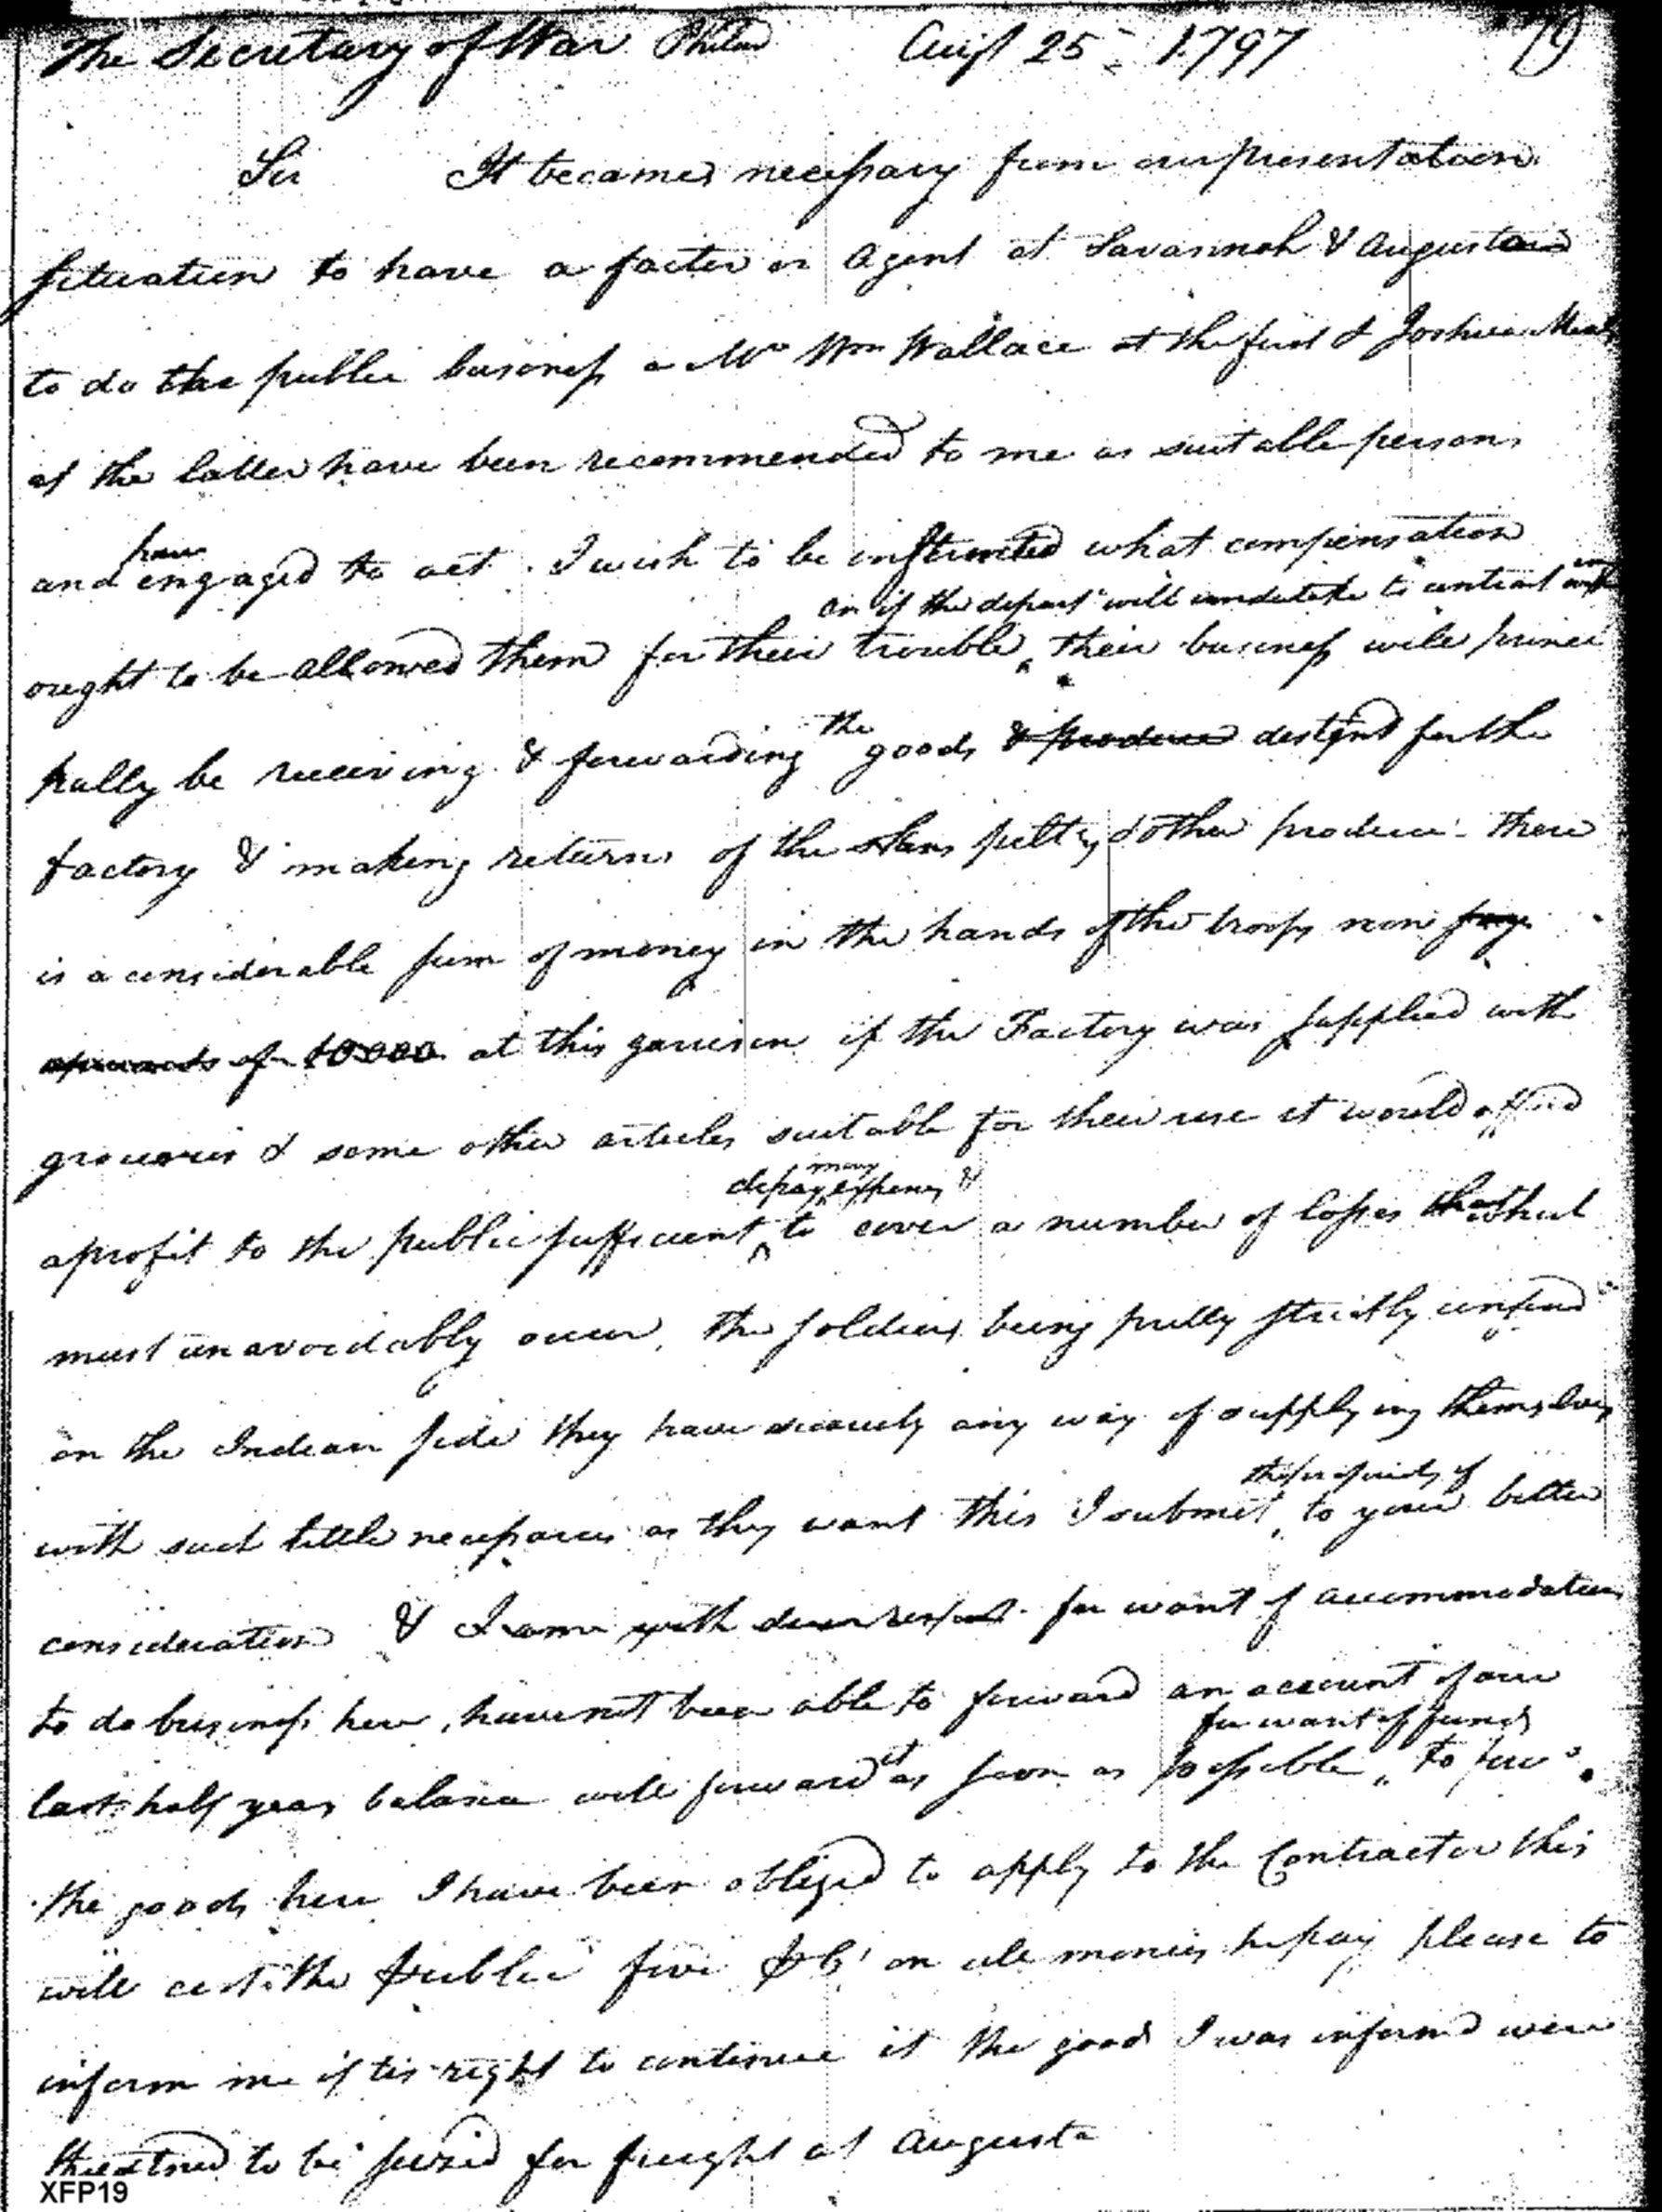 The Secretary of War Philad Augst 25 1797 19
Sir It becomes necessary from our present
situation to have a factor or Agent at Savannah & Augusta
to do the public business a Mr Wm Wallace at the first & Joshua Meals
at the latter have been recommended to me as suitable persons
have
and engaged to act. I wish to be instructed what compensation
or if the depart will undertake to contract with
ought to be allowed them for their trouble, their business will princi
the
pally be receiving & forwarding goods & produce destind for the
factory & making returns of the skins peltry & other produce - there
is a considerable sum of money in the hands of the troops now
upwards of 10000 at this garrison if the Factory was supplied with
groceries & some other articles suitable for their use it would afford
many
defray expences &
a profit to the public sufficient to cover a number of losses that which
must unavoidably occur, the soldiers being pretty strictly confind
on the Indian side they have scarcely any way of supplying themselves
the propriety of
with such little necessaries as they want this I submit to your better
consideration & I am with due respect for want of accommodation
to do business here, have not been able to forward an account of our
for want of funds
it
last half years balance will forward as soon as possible, to
the goods here I have been obliged to apply to the Contractor this
will cost the public five P Ct on all monies he pay please to
inform me if tis right to continue it the goods I was informd were
threatned to be seized for freight at Augusta
XFP19